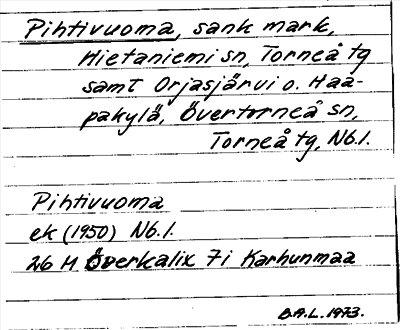 Pihtivuoma, sank mark,
Hietaniemi sn, Torneå tg
samt Orjasjärvi o. Haa-
pakylä, Övertorneå sn,
Torneå tg, Nb.l.
Pihtivuoma
ek (1950) Nb.l.
26 M Överkalix 7i Karhunmaa
B.A.L. 1973.